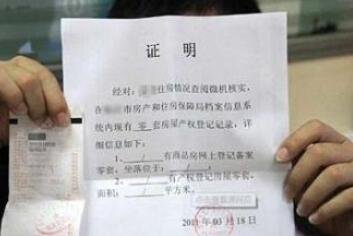 证 明
经对：住房情况查阅微机核实，
在市房产和住房保障局档案信息系
统内现有 零 套房屋产权登记记录，详
细信息如下：
1、 / 有商品房网上登记备案
零套，坐落位于： / ；
2、 / 有产权登记房屋零套，
面积： / 平方米。
2011 年 03 月 18 日